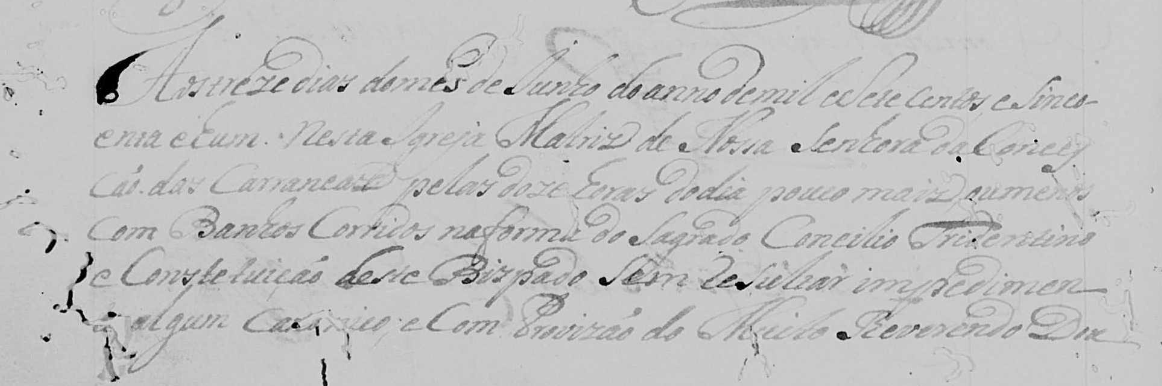 Aos treze dias do mês de Junho do anno de mil e Sete Centos e Sinco
enta e hum. Nesta Igreja Matriz de Nossa Senhora da Concey
cão das Carrancas pelas doze horas do dia pouco mais ou menos
Com Banhos Corridos na forma do Sagrado Concilio Tridentino
e Constetuição deste Bispado Sem Rezultar impedimen
algum Canonico, e Com Provizão do Muito Reverendo